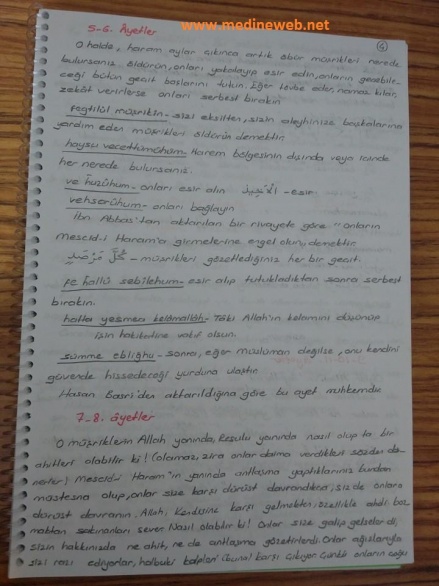 www.medineweb.net
5-6. Âyetler
O halde, haram aylar çıkınca artık öbür müşrikleri nerede
bulursanız öldürün, onları yakalayıp esir edin, onların geçebile-
ceği bütün geçit başlarını tutun. Eğer tevbe eder, namaz kılar,
zekât verirlerse onları serbest bırakın
feqtülûl müşrikîn - sizi eksilten, sizin aleyhinize başkalarına
yardım eden müşrikleri öldürün demektir.
haysu vecettümûhum - Harem bölgesinin dışında veya içinde
her nerede bulursanız.
ve huzûhum - onları esir alın - esir.
vehserûhum - onları bağlayın
İbn Abbas'tan aktarılan bir rivayete göre "onların
Mescid-i Haram'a girmelerine engel olun, demektir.
كُلَّ مَرْصَدٍ - müşrikleri gözetlediğiniz her bir geçit.
fe hallû sebîlehum - esir alıp tutukladıktan sonra serbest
bırakın.
hatta yesmea kelâmallâh - Tâki Allah'ın kelamını düşünüp
işin hakikatine vakıf olsun.
sümme ebliğhu - sonra, eğer müslüman değilse, onu kendini
güvende hissedeceği yurduna ulaştır.
Hasan Basrî'den aktarıldığına göre bu ayet muhkemdir
7-8. âyetler
O müşriklerin Allah yanında, Resulu yanında nasıl olup ta bir
ahitleri olabilir ki! (olamaz, zira onlar daima verdikleri sözden dö-
nerler) Mescid-i Haram'ın yanında antlaşma yaptıklarınız bundan
müstesna olup, onlar size karşı dürüst davrandıkça, siz de onlara
dürüst davranın. Allah, kendisine karşı gelmekten, özellikle ahdi boz
maktan sakınanları sever. Nasıl olabilir ki! Onlar size galip gelselerdi,
sizin hakkınızda ne ahit, ne de antlaşma gözetirlerdi. Onlar ağızlarıyla
sizi razı ediyorlar, halbuki kalpleri (buna) karşı çıkıyor. Çünkü onların çoğu